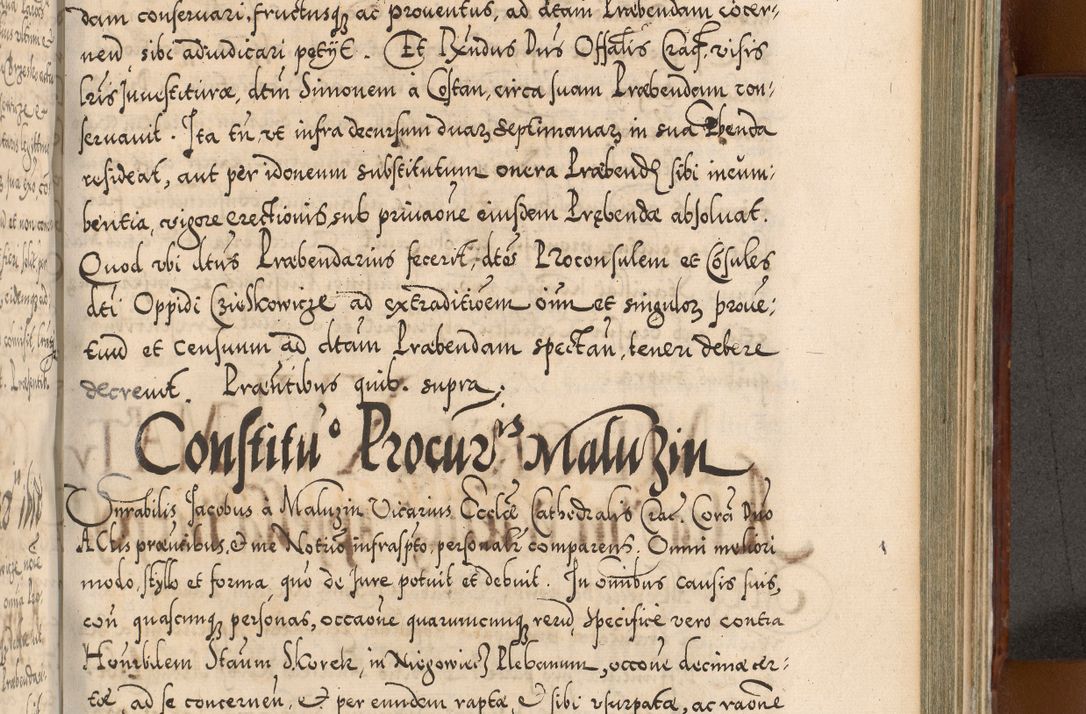 dam conseruari, fructusq ac prouentus, ad dtam Præbendam cocer-
nen, sibi adiudicari petijt. Et Rñdus Dñs Offalis Crac. visis
lris Inuestituræ, dtm Simonem à Costan, circa suam Præbendam con-
seruauit. Ita tñ, vt infra decursum duarz Septimanarz in sua Pbenda
resideat, aut per idoneum substitutum onera Præbendæ sibi incum-
bentia, vigore erectionis, sub priuaone eiusdem Prębendæ absoluat.
Quod vbi dtus Præbendarius fecerit, dtos Proconsulem et Cosules
dti Oppidi Czioskowicze ad extraditioem oim et singulorz proue-
tuud et censuum ad dtam Præbendam spectan, teneri debere
decreuit. Præntibus quib. supra.
Constituo Procuris Maluzin
Vnrabilis Jacobus à Maluzin Vicarius Eccleæ Cathedralis Crac. Cora Dno
Actis præntibus, & me Notrio infraspto, personalr comparens. Omni meliori
modo, styllo et forma, quo de Jure potuit et debuit. In omibus causis suis,
con quascunq personas, occaone quarumcunq rerud, specifice vero contra
Honrbilem Staum Skorek, in Niegowiecz Plebanum, occone decimæ cer-
tæ, ad se concernen, & per eundem raptæ, & sibi vsurpatæ, ac raone